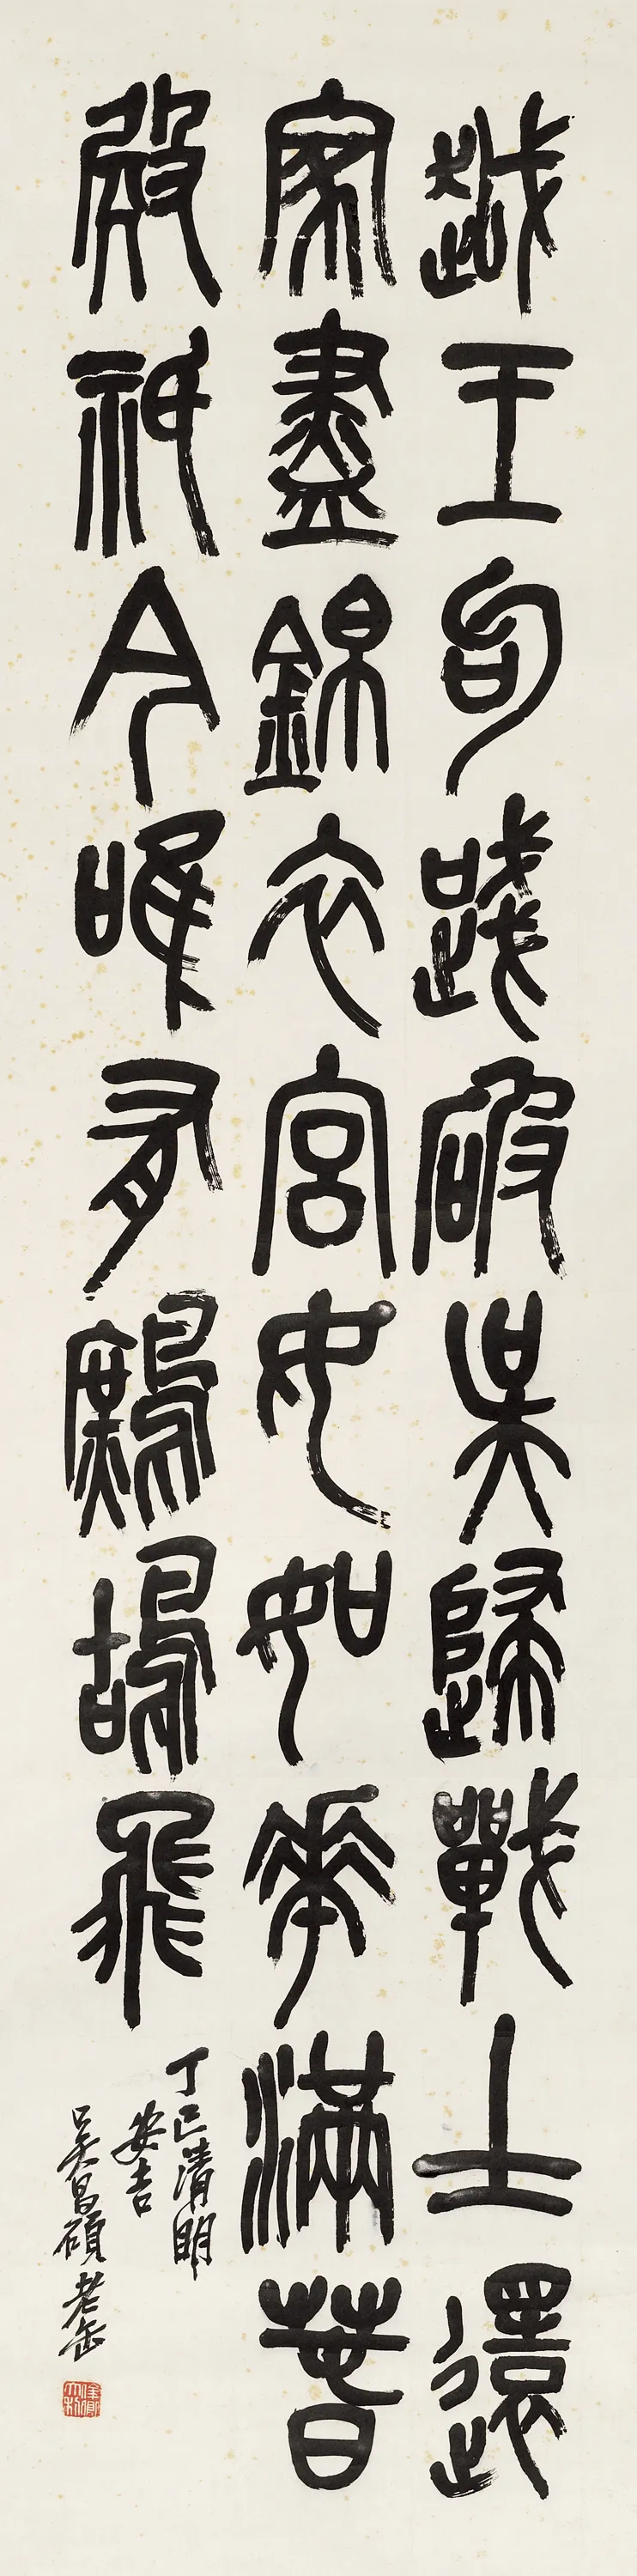 越王句踐破吳歸戰士還
家盡錦衣宮女如花滿春
殿祇今唯有鷓鴣飛
丁巳清明
安吉
吳昌碩老缶